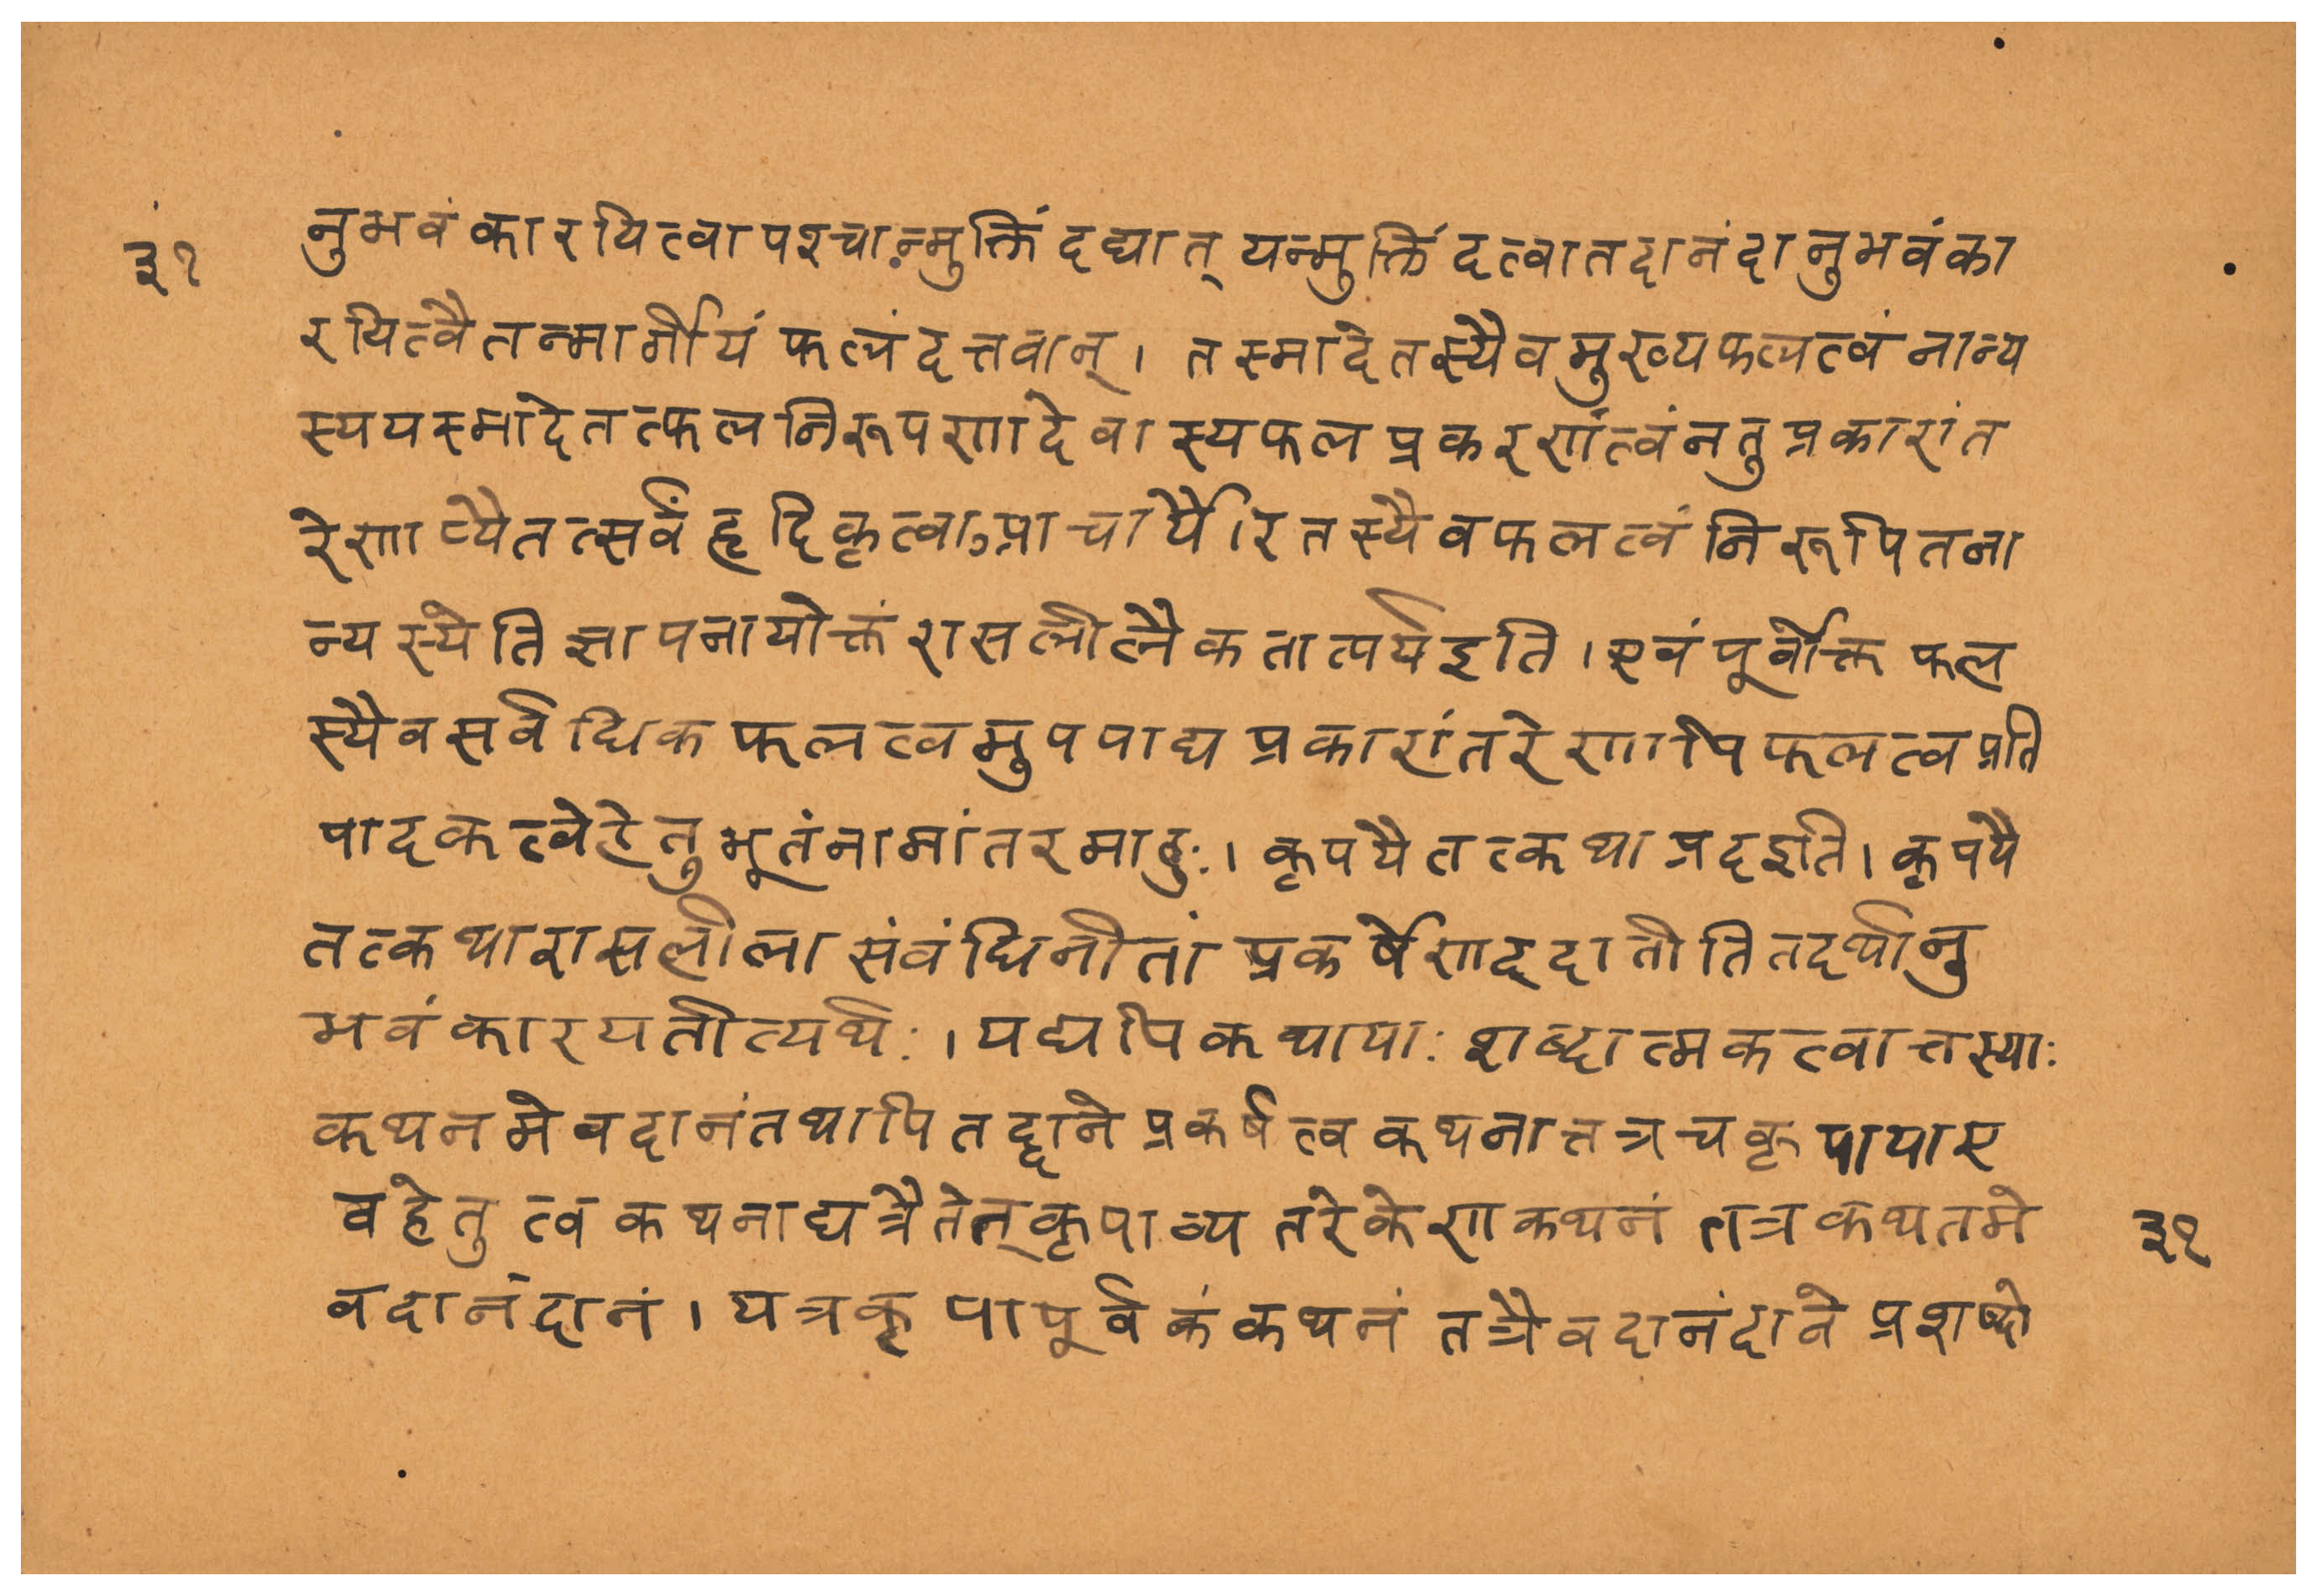 ३१
नुभवंकारयित्वापश्चान्मुक्तिंदद्यात् यन्मुक्तिंदत्वातदानंदानुभवंका
रयित्वैतन्मार्गीयंफलंदत्तवान्। तस्मादेतस्यैवमुख्यफलत्वंनान्य
स्ययस्मादेतत्फलनिरूपणादेवास्यफलप्रकरणांत्वंनतुप्रकारांत
रेणाप्यैतत्सर्वंहृदिकृत्वाऽप्राचार्यैरितस्यैवफलत्वंनिरूपितना
न्यस्येतिज्ञापनायोक्तंरासलीलैकतात्पर्यइति। एवंपूर्वोक्तफल
स्यैवसर्वाधिकफलत्वमुपपाद्यप्रकारांतरेणापिफलत्वप्रति
पादकत्वेहेतुभूतंनामांतरमाहुः। कृपयैतत्कथाप्रदइति। कृपयै
तत्कथारासलीलासंवंधिनीतांप्रकर्षेणाद्दातीतितदर्थानु
भवंकारयतीत्यर्थः। यद्यपिकथायाः शब्दात्मकत्वात्तस्याः
कथनमेवदानंतथापितद्दानेप्रकर्षत्वकथनात्तत्रचकृपायाए
वहेतुत्वकथनाद्यत्रैतेत्कृपाव्यतरेकेणकथनंतत्रकथतमे
वदानंदानं। यत्रकृपापूर्वकंकथनंतत्रैवदानंदानेप्रशब्दो
३१